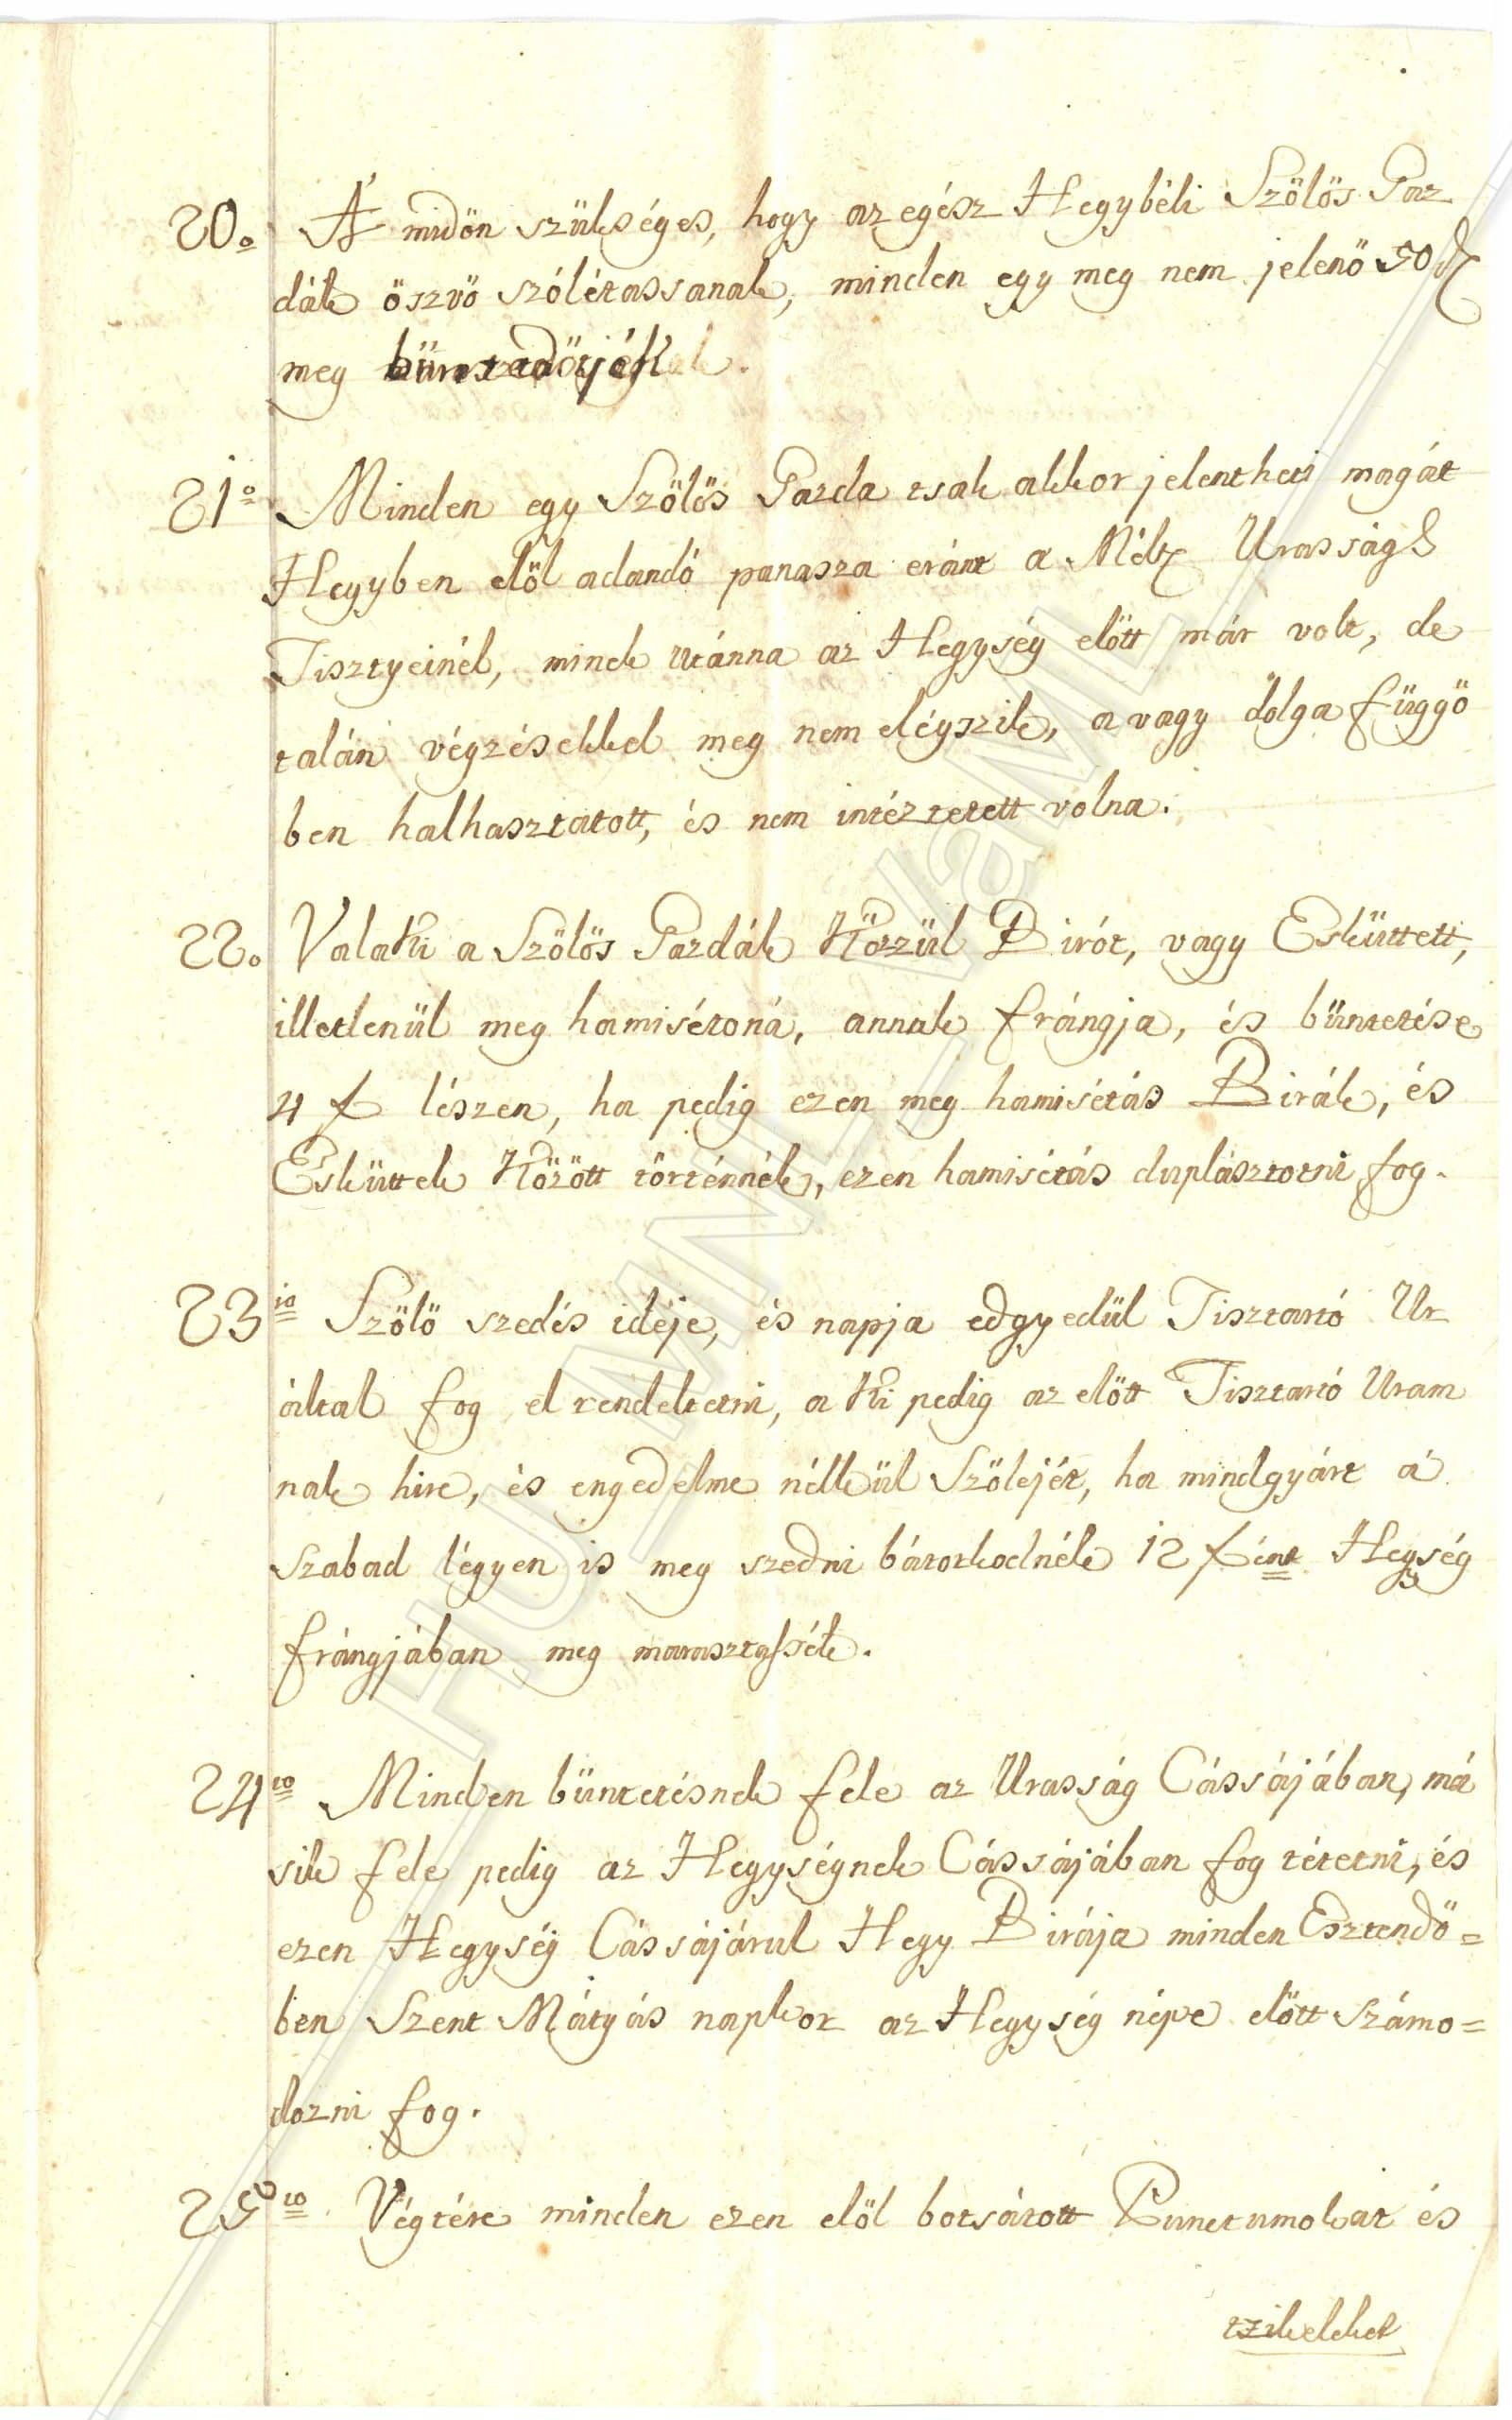 20o A midön szükséges, hogy az egész Hegybéli Szölös Gaz
dák öszvö szólétassanak, minden egy meg nem jelenö 50 d
meg büntetödjék.
21o Minden egy Szölös Gazda tsak akkor jelentheti magát
Hegyben elöl adandó panasza eránt a Mélt Urasság
Tisztyeinél, minek utánna az Hegység elött már volt, de
talán végzésekkel meg nem elégszik, a vagy dolga függö
ben halhasztatott, és nem intéztetett volna.
22o Valaki a Szölös Gazdák Közzül Birót, vagy Esküttett,
illetlenül meg hamisétoná, annak frángja, és büntetése
4 f lészen, ha pedig ezen meg hamisétás Birák, és
Esküttek Között történnék, ezen hamisétás duplásztotni fog.
23io Szölö szedés idéje, és napja edgyedül Tisztartó Ur
által fog el rendeltetni, a Ki pedig az elött Tisztartó Uram
nak hire, és engedelme nélkül Szölejét, ha mindgyárt a
Szabad légyen is meg szedni bátorkodnék 12 f ént Hegység
frángjában meg marasztassék.
24to Minden büntetésnek fele az Urasság Cássájában, má
sik fele pedig az Hegységnek Cássájában fog tétetni, és
ezen Hegység Cássájárul Hegy Birája minden Esztendö=
ben Szent Mátyás napkor az Hegység népe elött Számo=
dozni fog.
25to Végtére minden ezen elöl botsátott Punctumokat és
tzikelket
HU_MNL_VaML